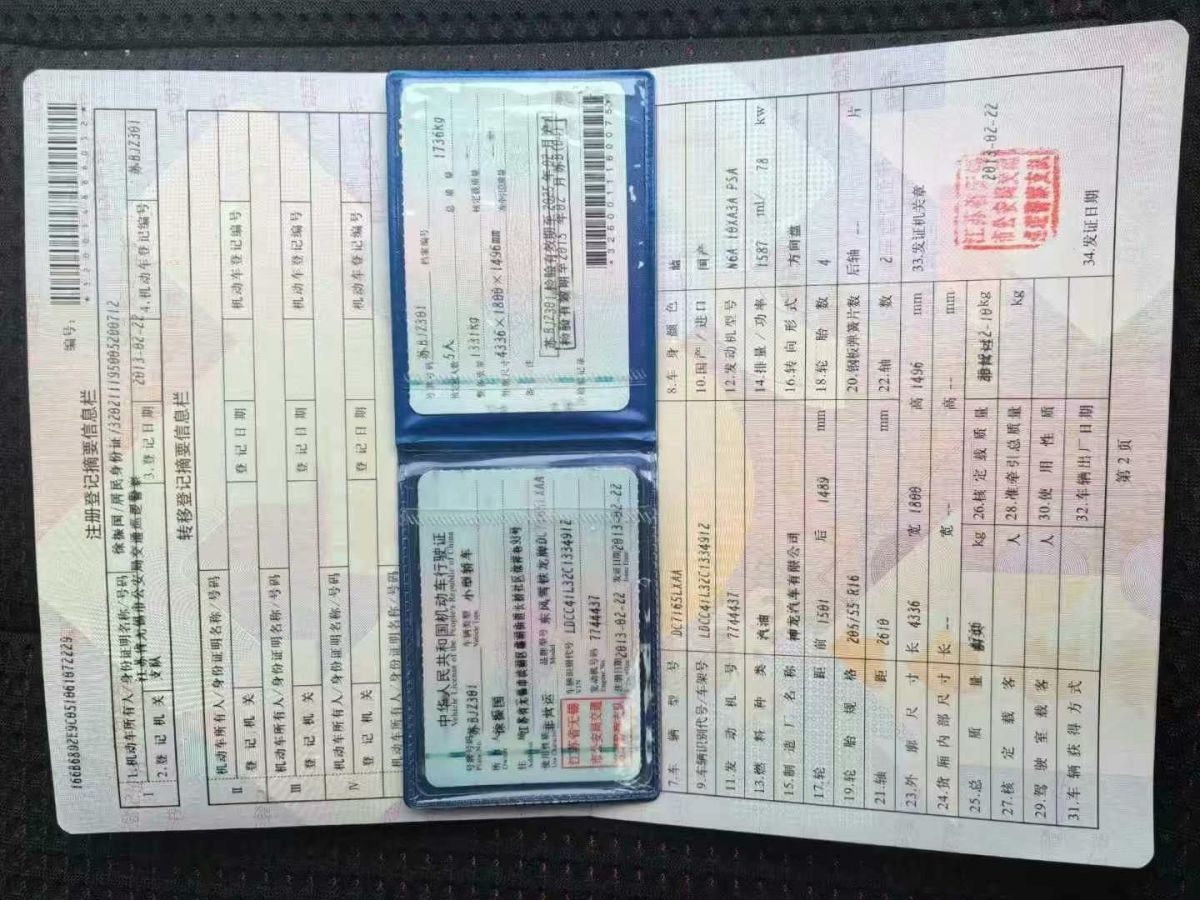 166B6802E9C0510610722​29
编号:
注册登记摘要信息栏
1.机动车所有人/身份证明名称/号码 徐振国/居民身份证/320211195005200712
2.登记机关 江苏省无锡市公安局交通巡逻警察支队 3.登记日期 2013-02-22 4.机动车登记编号 苏BJZ301
转移登记摘要信息栏
Ⅱ 机动车所有人/身份证明名称/号码
登记机关 登记日期 机动车登记编号
Ⅲ 机动车所有人/身份证明名称/号码
登记机关 登记日期 机动车登记编号
Ⅳ 机动车所有人/身份证明名称/号码
登记机关 登记日期 机动车登记编号
机动车所有人/身份证明名称/号码
中华人民共和国机动车行驶证
Vehicle License of the People's Republic of China
号牌号码 苏BJZ301 车辆类型 小型轿车
Plate No. Vehicle Type
所 徐振国
住
使用性质 非营运 品牌型号 东风雪铁龙牌
Model
江苏省无锡
市公安局交通
车辆识别代号 LDCC41L32C1334912
VIN
发动机号码 7744437
Engine No.
注册日期 2013-02-22 发证日期 2013-02-22
号牌号码 苏BJZ301 档案编号
核定载人数 5人 总质量 1736kg
整备质量 1331kg 核定载质量 --
外廓尺寸 4336×1800×1496mm 准牵引总质量 --
备注
检验记录
*3260011160075*
7.车辆型号 DC7165LXAA 8.车身颜色
9.车辆识别代号/车架号 LDCC41L32C1334912 10.国产/进口 国产
11.发动机号 7744437 12.发动机型号 N6A 10XA3A PSA
13.燃料种类 汽油 14.排量/功率 1587 ml/ 78 kw
15.制造厂名称 神龙汽车有限公司 16.转向形式 方向盘
17.轮距 前 1501 后 1489 mm 18.轮胎数 4
19.轮胎规格 205/55 R16 20.钢板弹簧片数 后轴 -- 片
21.轴距 2610 mm 22.轴数 2
23.外廓尺寸 长 4336 宽 1800 高 1496 mm 33.发证机关章
24.货厢内部尺寸 长 -- 宽 -- 高 -- mm
25.总质量 kg 26.核定载质量 kg
27.核定载客 人 28.准牵引总质量 kg
29.驾驶室载客 人 30.使用性质
31.车辆获得方式 32.车辆出厂日期 34.发证日期
2013-02-22
第 2 页